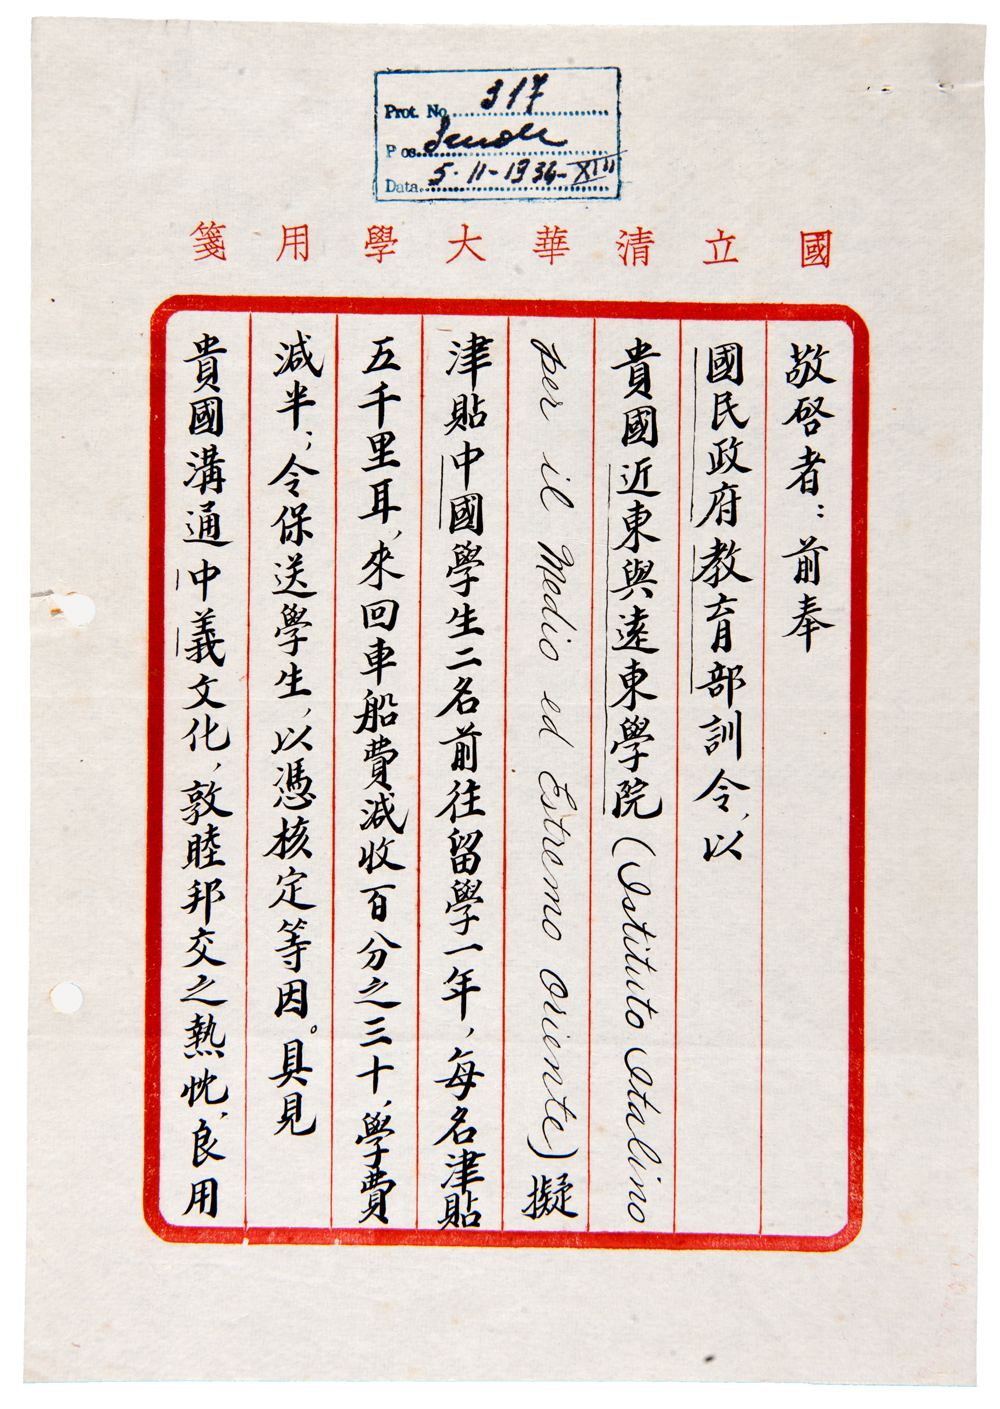 Prot. No. 317
Pos.
Data. 5-11-1934-XIII
國立清華大學用箋
敬啓者：前奉
國民政府教育部訓令，以
貴國近東與遠東學院(Istituto Italino
per il Medio ed Estremo Oriente)擬
津貼中國學生二名前往留學一年，每名津貼
五千里耳，來回車船費減收百分之三十，學費
減半；令保送學生，以憑核定等因。具見
貴國溝通中義文化，敦睦邦交之熱忱，良用